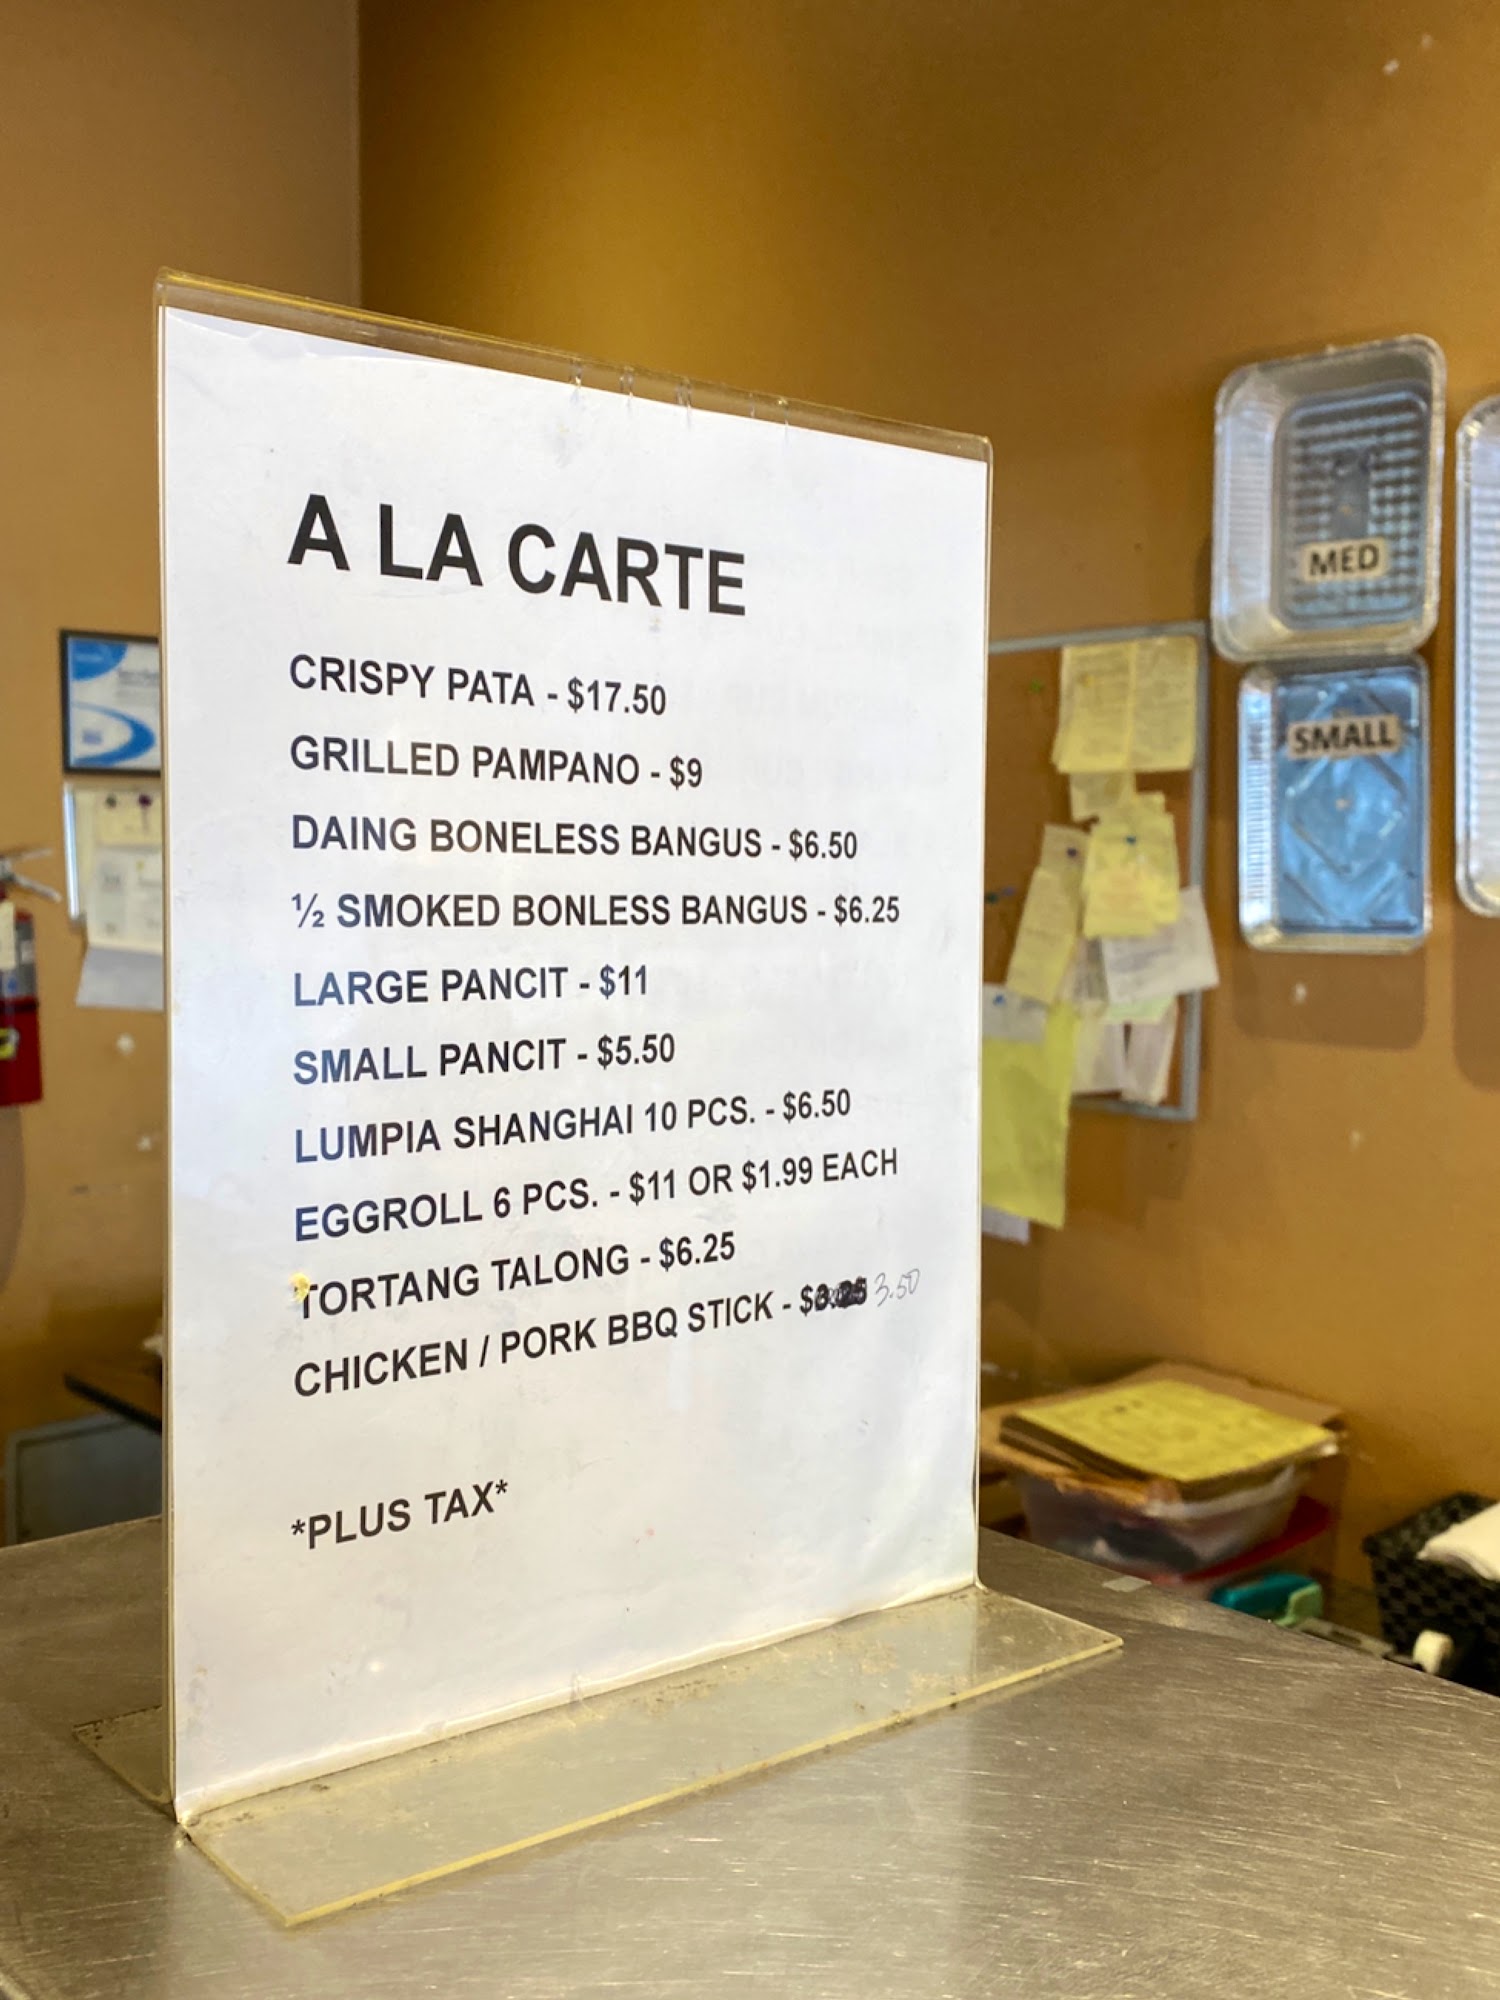 A LA CARTE
CRISPY PATA - $17.50
GRILLED PAMPANO - $9
DAING BONELESS BANGUS - $6.50
½ SMOKED BONLESS BANGUS - $6.25
LARGE PANCIT - $11
SMALL PANCIT - $5.50
LUMPIA SHANGHAI 10 PCS. - $6.50
EGGROLL 6 PCS. - $11 OR $1.99 EACH
TORTANG TALONG - $6.25
CHICKEN / PORK BBQ STICK - $3.25 3.50
*PLUS TAX*
MED
SMALL